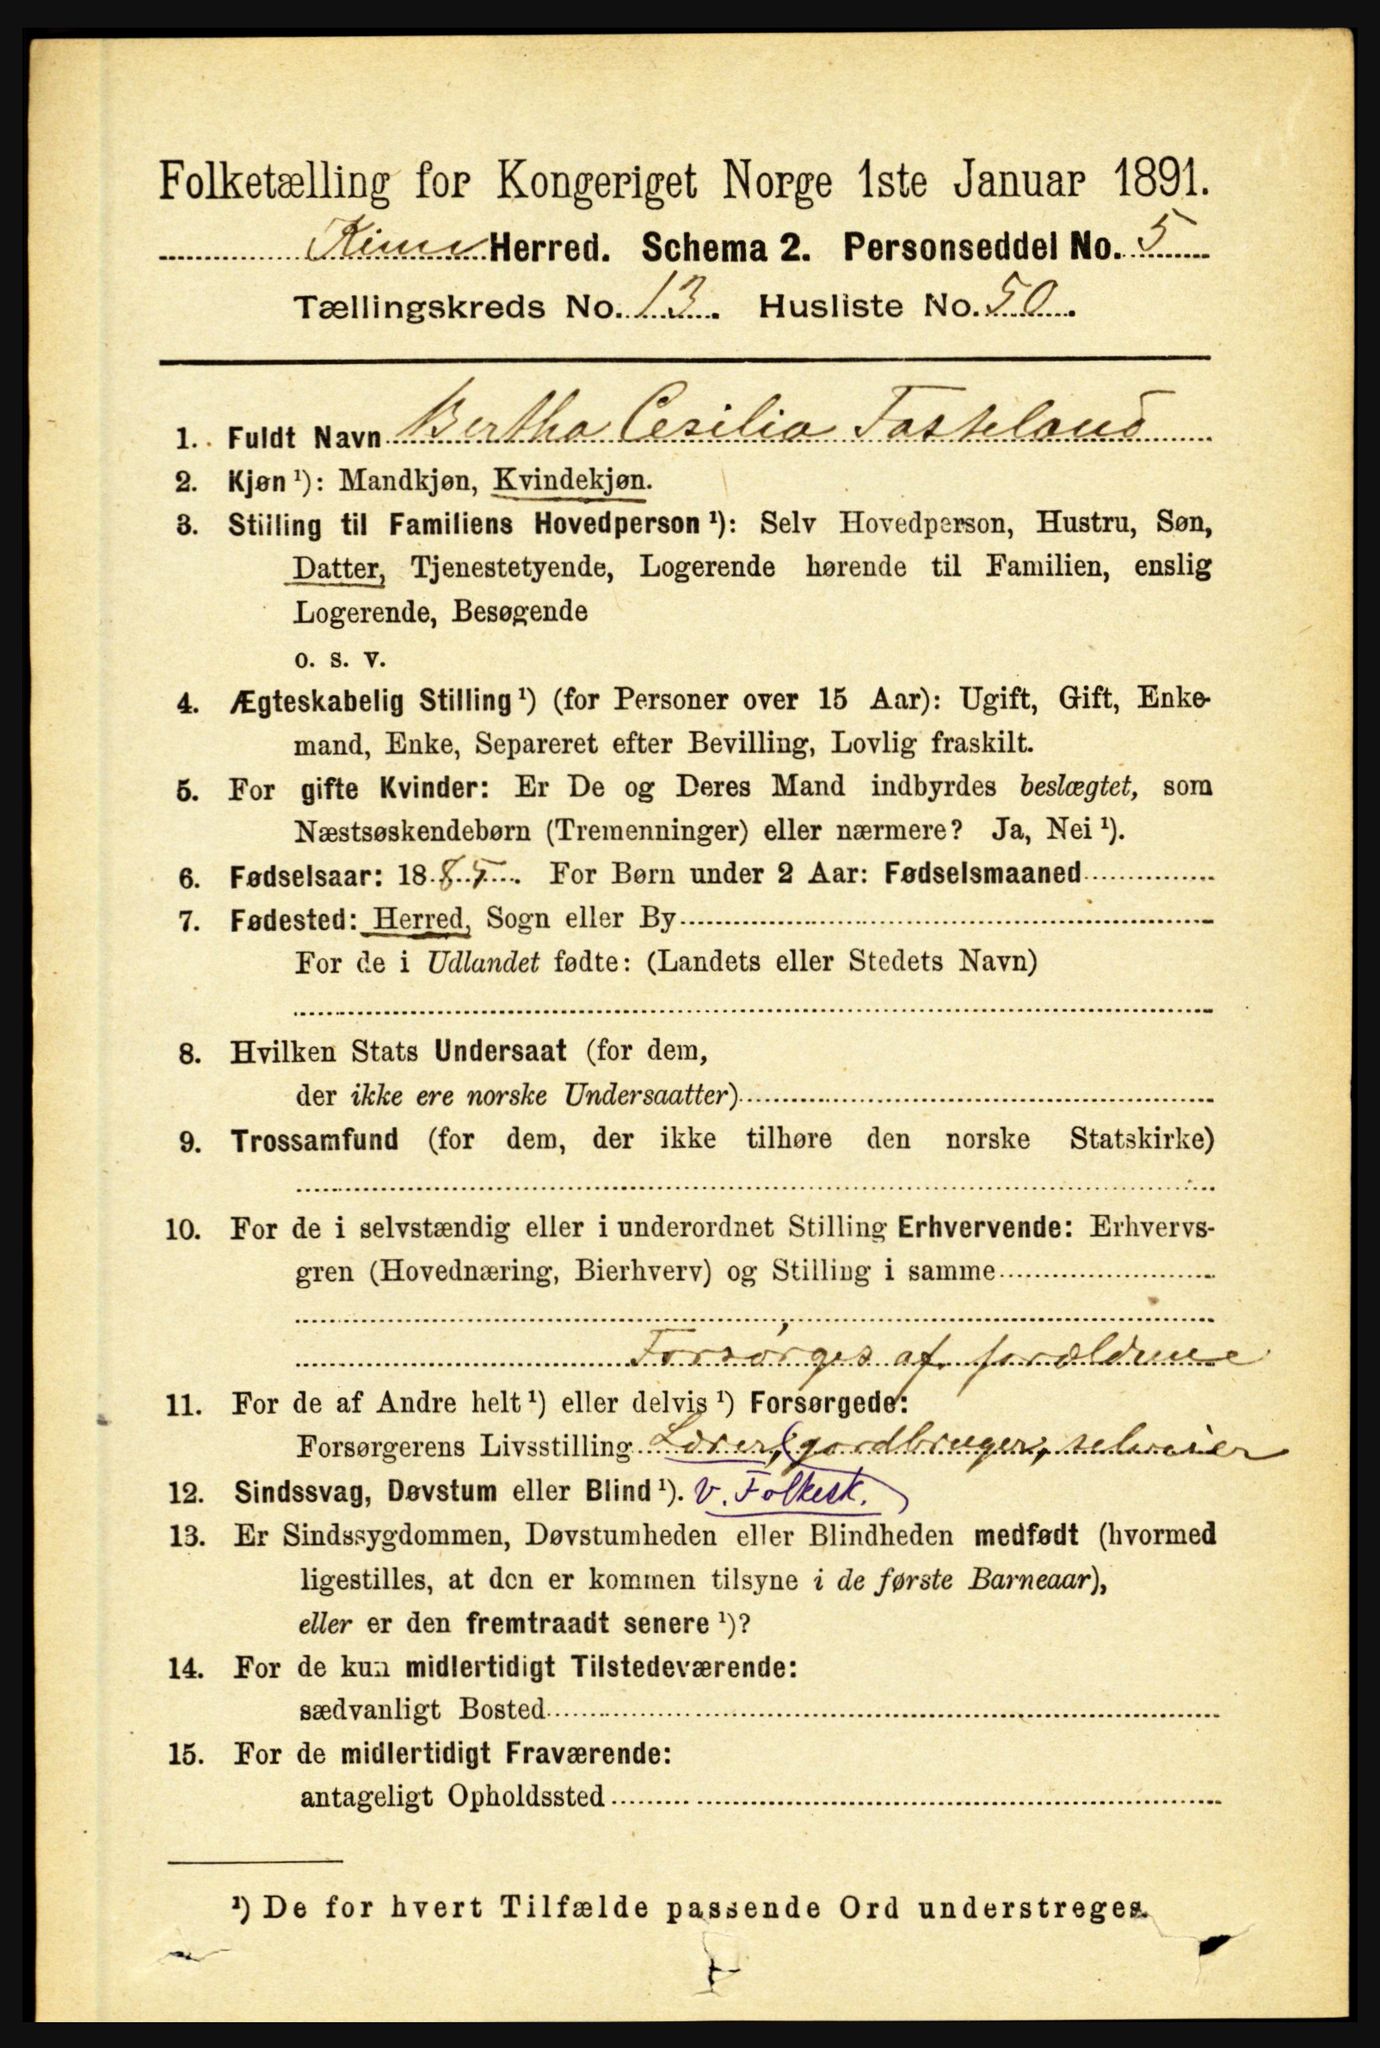 Folketælling for Kongeriget Norge 1ste Januar 1891.
Kinn Herred. Schema 2. Personseddel No. 5
Tællingskreds No. 13. Husliste No. 50.
1. Fuldt Navn Bertha Cesilia Fasteland
2. Kjøn ¹): Mandkjøn, Kvindekjøn.
3. Stilling til Familiens Hovedperson ¹): Selv Hovedperson, Hustru, Søn,
Datter, Tjenestetyende, Logerende hørende til Familien, enslig
Logerende, Besøgende
o. s. v.
4. Ægteskabelig Stilling ¹) (for Personer over 15 Aar): Ugift, Gift, Enke-
mand, Enke, Separeret efter Bevilling, Lovlig fraskilt.
5. For gifte Kvinder: Er De og Deres Mand indbyrdes beslægtet, som
Næstsøskendebørn (Tremenninger) eller nærmere? Ja, Nei ¹).
6. Fødselsaar: 1885. For Børn under 2 Aar: Fødselsmaaned
7. Fødested: Herred, Sogn eller By
For de i Udlandet fødte: (Landets eller Stedets Navn)
8. Hvilken Stats Undersaat (for dem,
der ikke ere norske Undersaatter)
9. Trossamfund (for dem, der ikke tilhøre den norske Statskirke)
10. For de i selvstændig eller i underordnet Stilling Erhvervende: Erhvervs-
gren (Hovednæring, Bierhverv) og Stilling i samme
Forsørges af forældrene
11. For de af Andre helt ¹) eller delvis ¹) Forsørgede:
Forsørgerens Livsstilling Lærer, (gardbruger, selveier
12. Sindssvag, Døvstum eller Blind ¹). v. Folkesk.)
13. Er Sindssygdommen, Døvstumheden eller Blindheden medfødt (hvormed
ligestilles, at den er kommen tilsyne i de første Barneaar),
eller er den fremtraadt senere ¹)?
14. For de kun midlertidigt Tilstedeværende:
sædvanligt Bosted
15. For de midlertidigt Fraværende:
antageligt Opholdssted
¹) De for hvert Tilfælde passende Ord understreges.